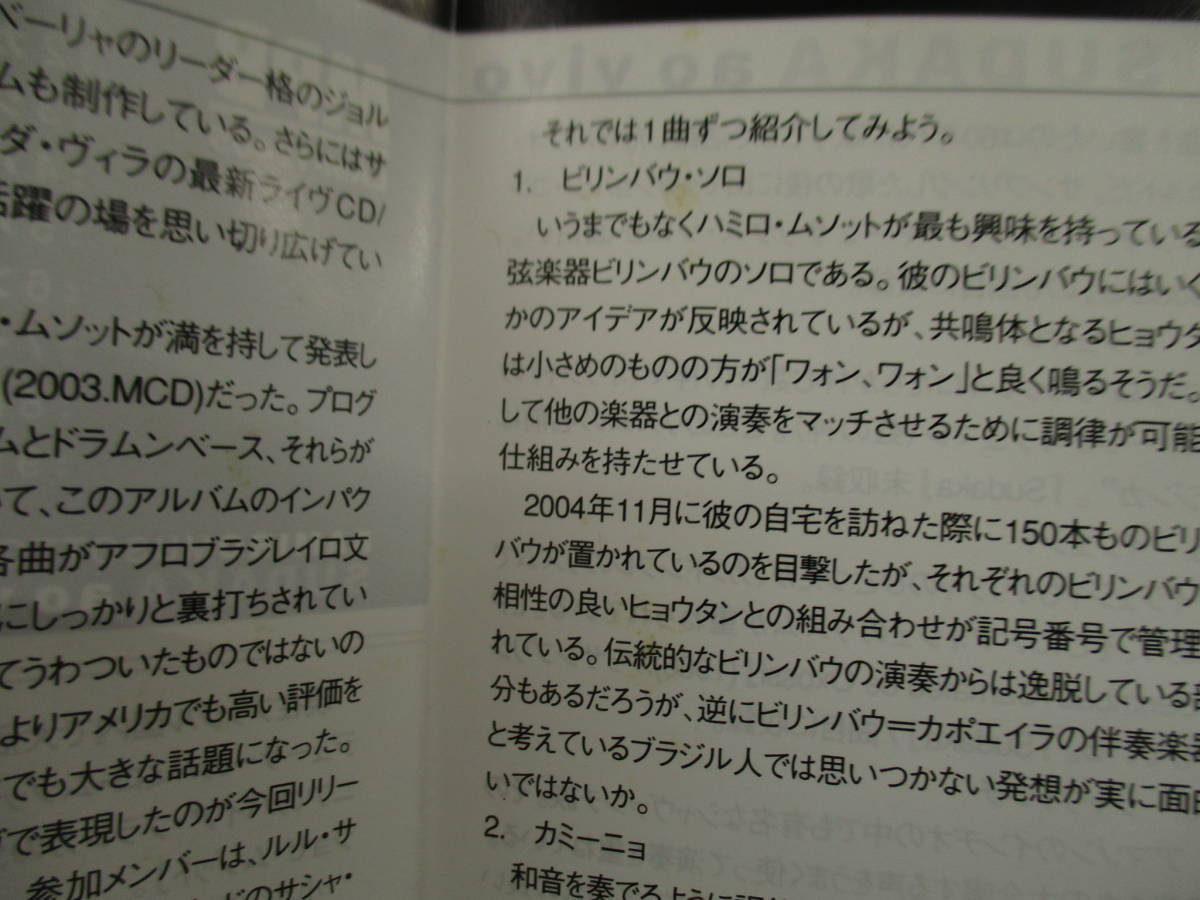 ベーリャのリーダー格のジョル
ムも制作している。さらにはサ
ダ・ヴィラの最新ライヴCD/
活躍の場を思い切り広げてい
・ムソットが満を持して発表し
(2003.MCD)だった。プログ
ムとドラムンベース、それらが
て、このアルバムのインパク
各曲がアフロブラジレイロ文
にしっかりと裏打ちされてい
てうわついたものではないの
よりアメリカでも高い評価を
でも大きな話題になった。
で表現したのが今回リリー
参加メンバーは、ルル・サ
ドのサシャ・
SUDAKA ao vivo
それでは1曲ずつ紹介してみよう。
1. ビリンバウ・ソロ
いうまでもなくハミロ・ムソットが最も興味を持っている
弦楽器ビリンバウのソロである。彼のビリンバウにはいく
かのアイデアが反映されているが、共鳴体となるヒョウタ
は小さめのものの方が「ワォン、ワォン」と良く鳴るそうだ。
して他の楽器との演奏をマッチさせるために調律が可能
仕組みを持たせている。
2004年11月に彼の自宅を訪ねた際に150本ものビリ
バウが置かれているのを目撃したが、それぞれのビリンバウ
相性の良いヒョウタンとの組み合わせが記号番号で管理
れている。伝統的なビリンバウの演奏からは逸脱している部
分もあるだろうが、逆にビリンバウ=カポエイラの伴奏楽器
と考えているブラジル人では思いつかない発想が実に面白
いではないか。
2. カミーニョ
和音を奏でるように